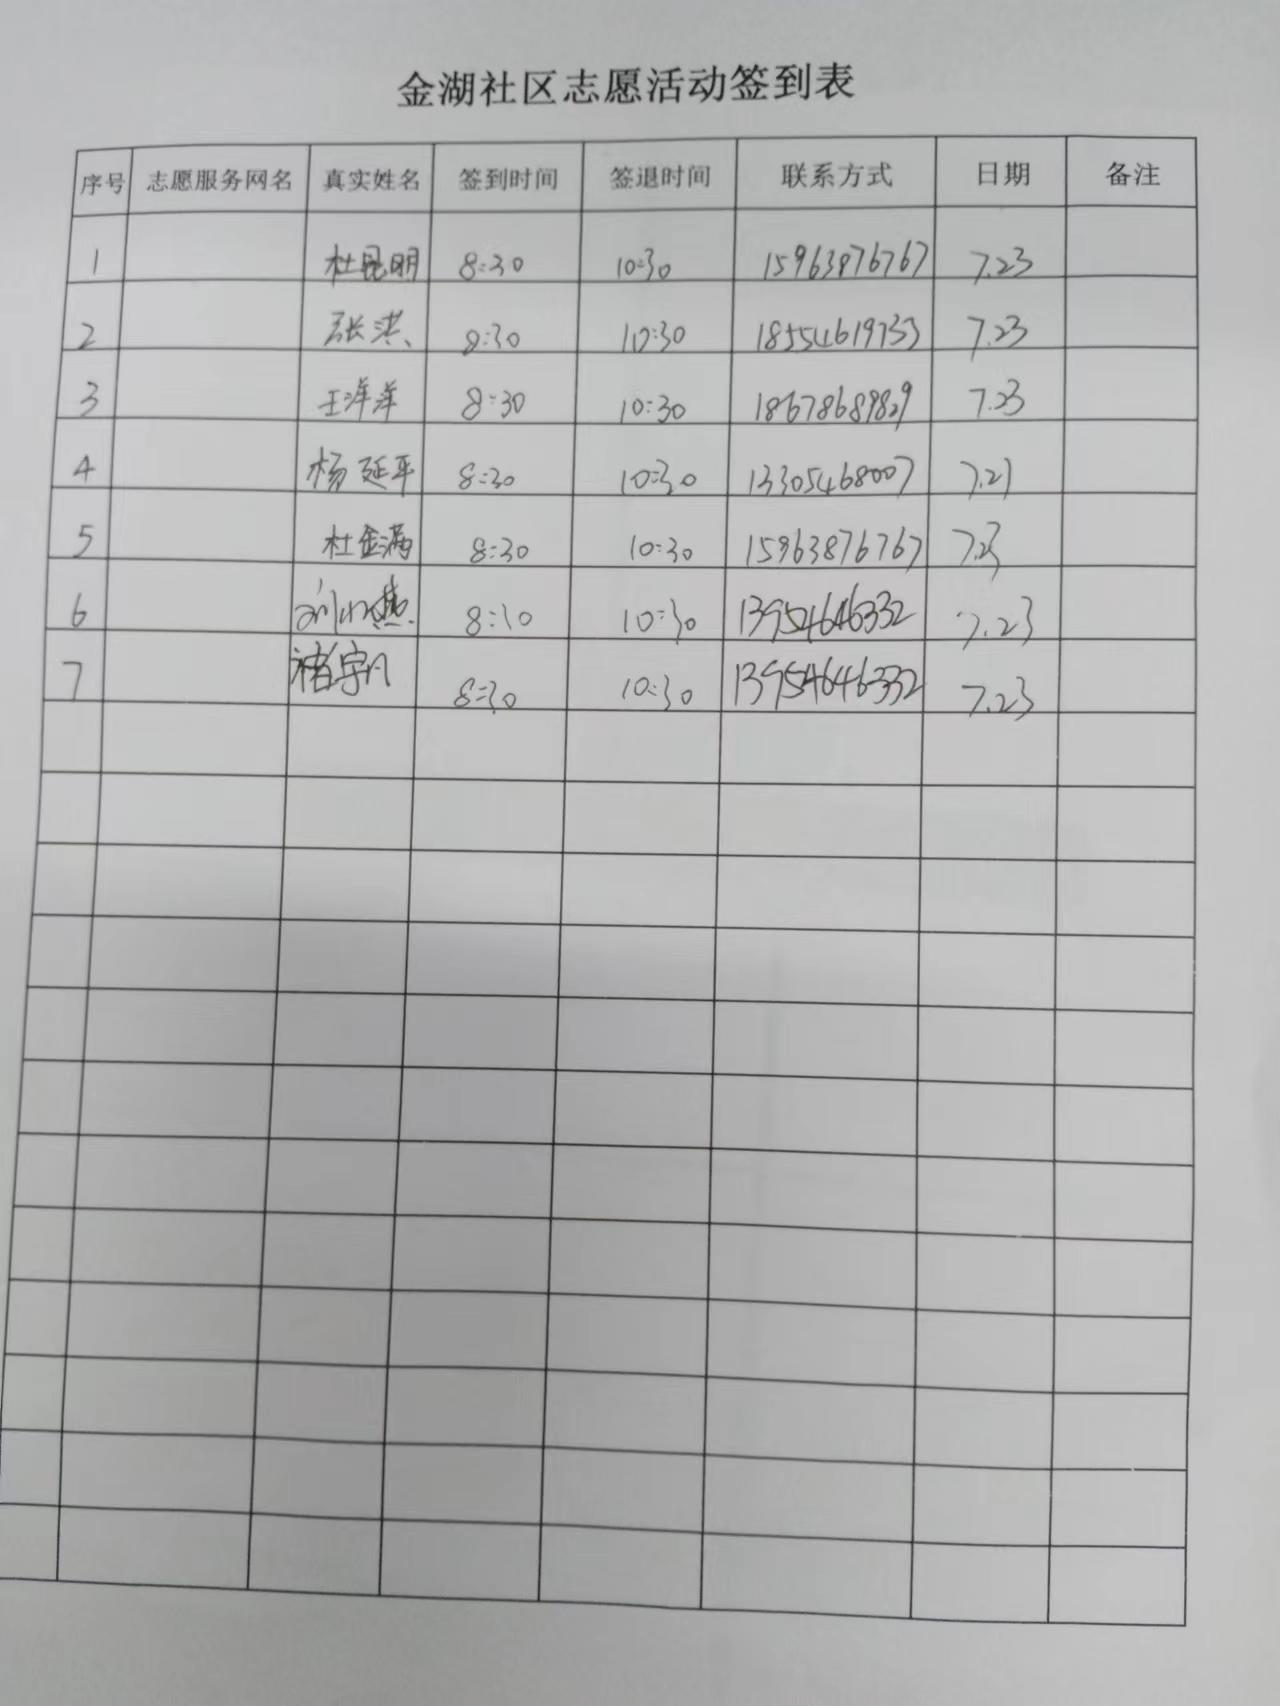 金湖社区志愿活动签到表
序号 志愿服务网名 真实姓名 签到时间 签退时间 联系方式 日期 备注
1 杜昆明 8:30 10:30 15963876767 7.23
2 张洪 8:30 10:30 18554619733 7.23
3 王洋洋 8:30 10:30 18678689829 7.23
4 杨延平 8:30 10:30 13305468007 7.23
5 杜金满 8:30 10:30 15963876767 7.23
6 8:30 10:30 13954646332 7.23
7 褚宇凡 8:30 10:30 13954646332 7.23